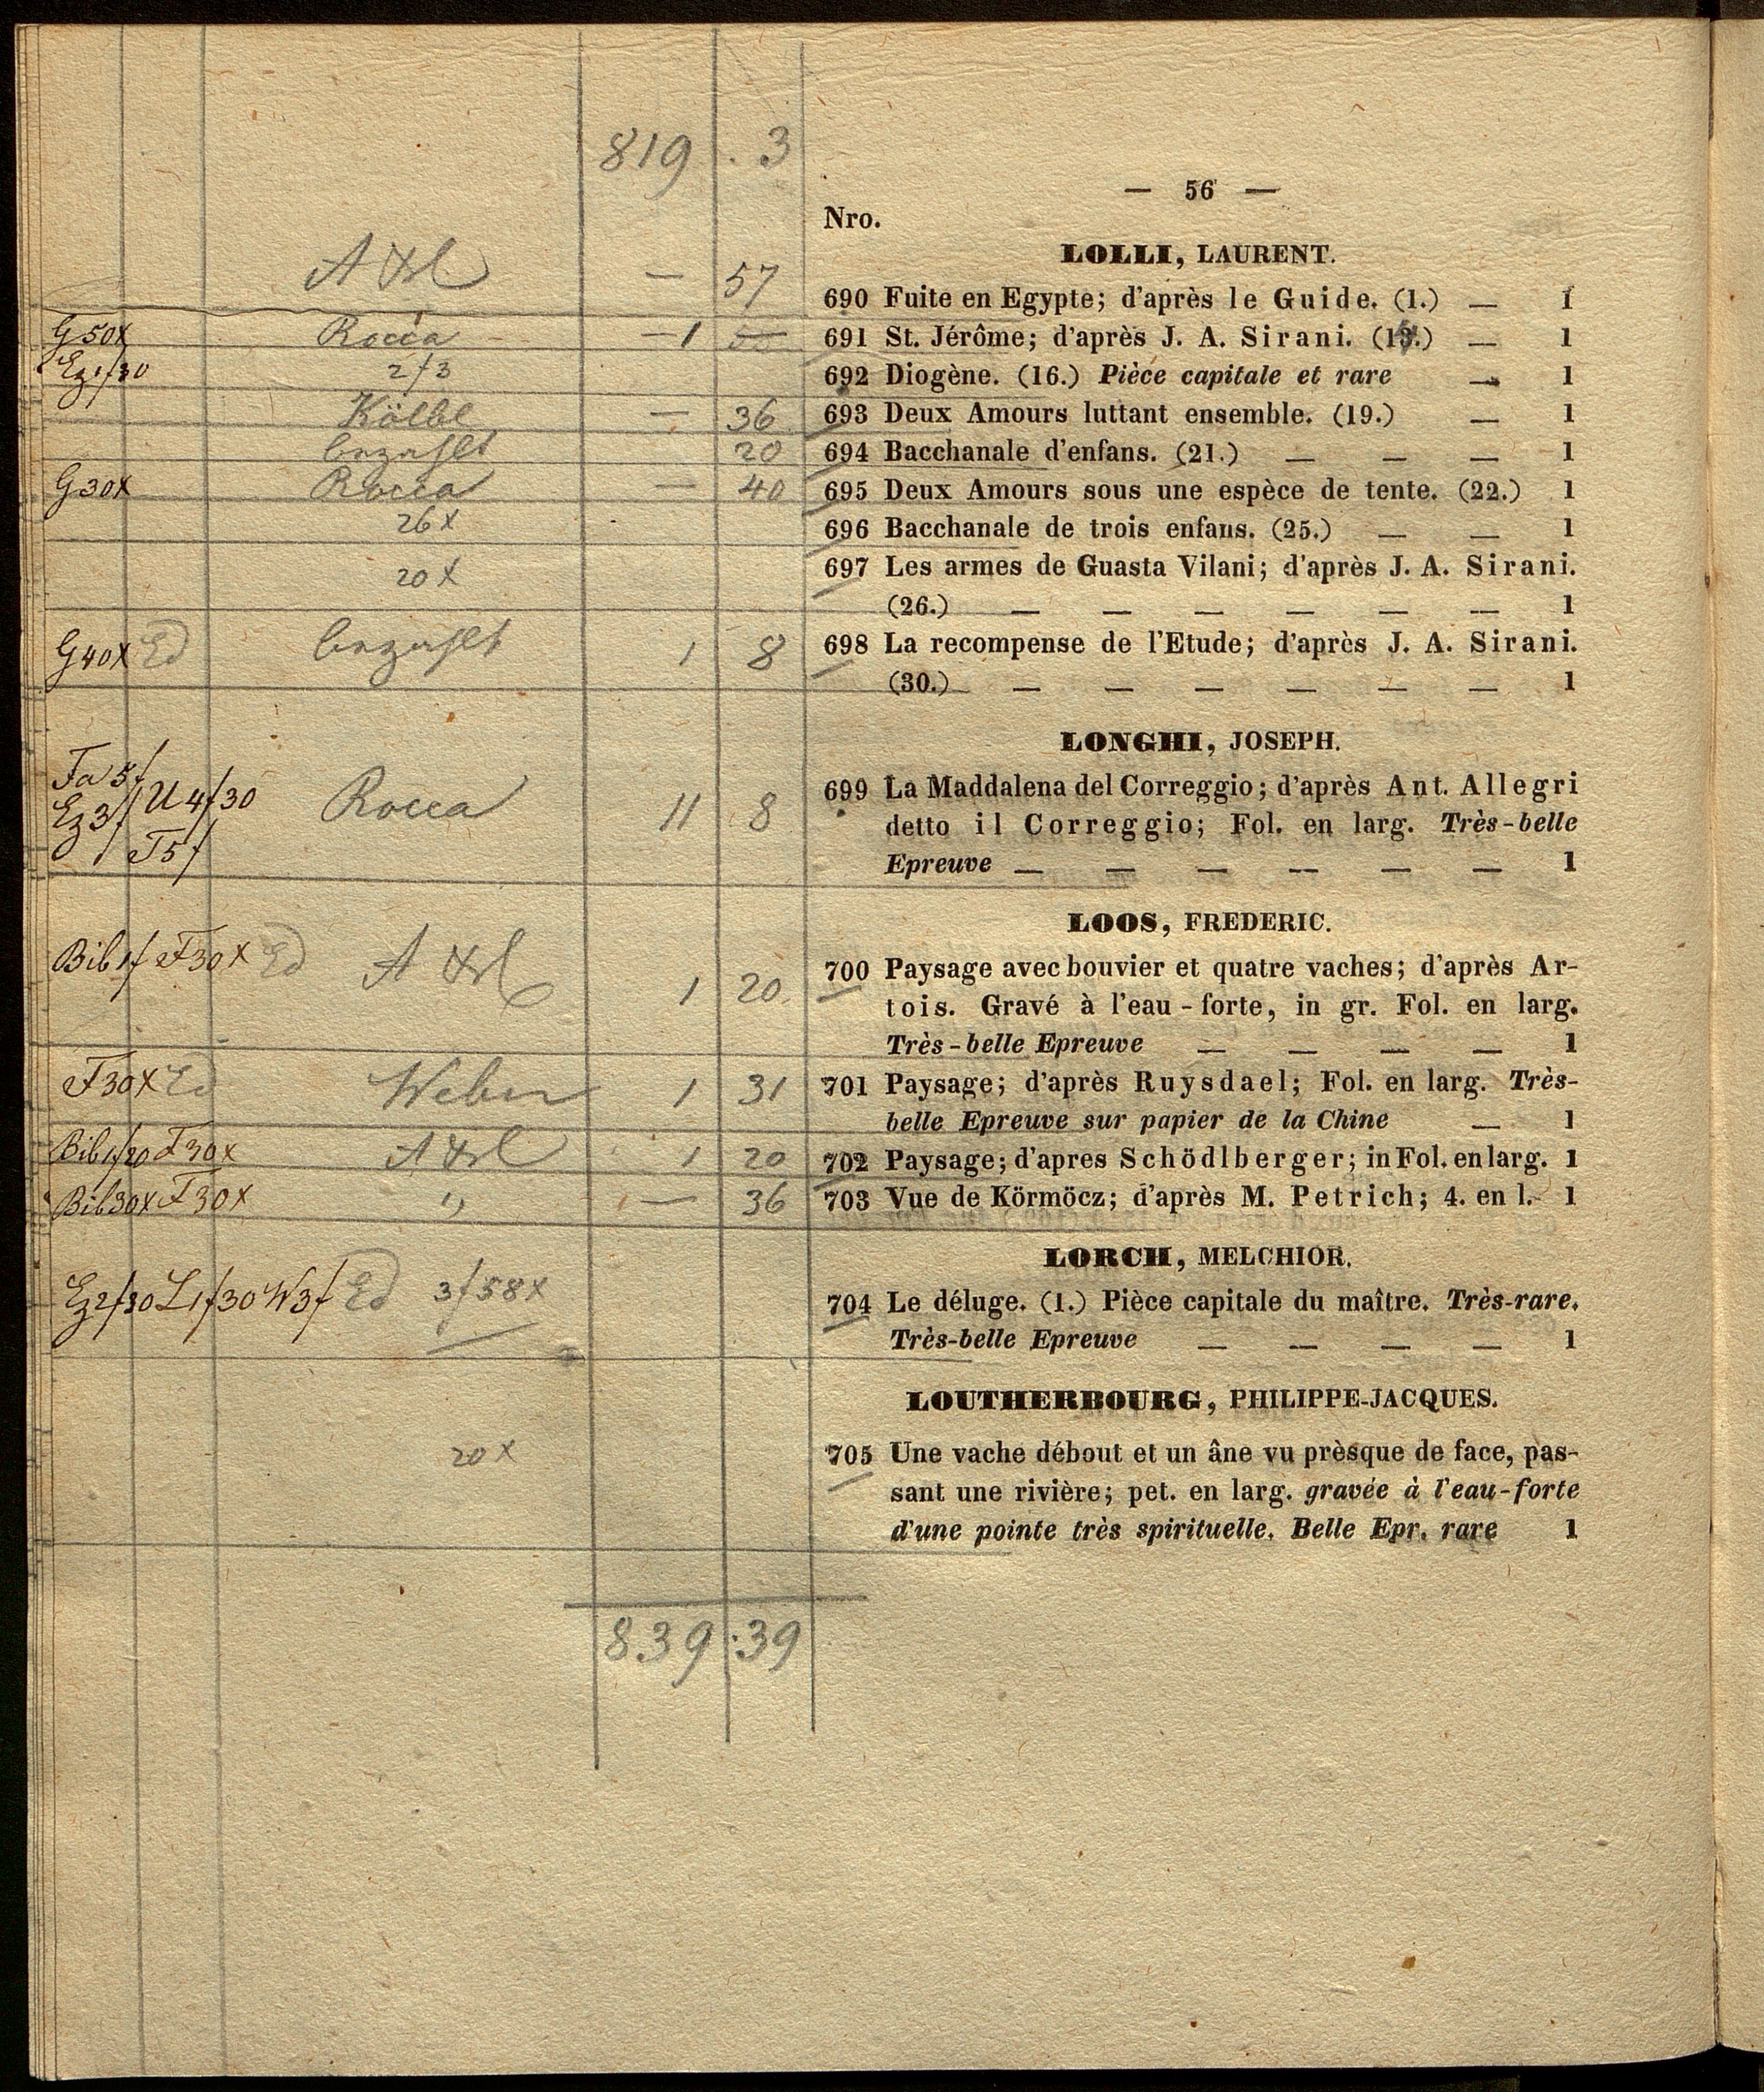 819 . 3
— 56 —
Nro.
LOLLI, LAURENT.
— 57 690 Fuite en Egypte; d'après le Guide. (1.) — 1
G50x Rocca — 1 691 St. Jérôme; d'après J. A. Sirani. — 1
2f3 692 Diogène. (16.) Pièce capitale et rare — 1
Kölbl — 36 693 Deux Amours luttant ensemble. (19.) — 1
bezahlt 20 694 Bacchanale d'enfans. (21.) — — — 1
G30x Rocca — 40 695 Deux Amours sous une espèce de tente. (22.) 1
26x 696 Bacchanale de trois enfans. (25.) — — 1
20x 697 Les armes de Guasta Vilani; d'après J. A. Sirani.
(26.) — — — — — — 1
G40x Ed bezahlt 1 8 698 La recompense de l'Etude; d'après J. A. Sirani.
(30.) — — — — — — 1
LONGHI, JOSEPH.
Fa 5f Ez3f U4f30 T5f Rocca 11 8 699 La Maddalena del Correggio; d'après Ant. Allegri
detto il Correggio; Fol. en larg. Très-belle
Epreuve — — — — — — 1
LOOS, FREDERIC.
Bib1f F30x Ed 1 20 700 Paysage avec bouvier et quatre vaches; d'après Ar-
tois. Gravé à l'eau-forte, in gr. Fol. en larg.
Très-belle Epreuve — — — — 1
F30x Ed Weber 1 31 701 Paysage; d'après Ruysdael; Fol. en larg. Très-
belle Epreuve sur papier de la Chine — 1
Bib1f20 F30x 1 20 702 Paysage; d'apres Schödlberger; in Fol. en larg. 1
Bib30x F30x " — 36 703 Vue de Körmöcz; d'après M. Petrich; 4. en l. 1
LORCH, MELCHIOR.
Ez2f30 L1f30 W3f Ed 3f58x 704 Le déluge. (1.) Pièce capitale du maître. Très-rare.
Très-belle Epreuve — — — — 1
LOUTHERBOURG, PHILIPPE-JACQUES.
20x 705 Une vache débout et un âne vu prèsque de face, pas-
sant une rivière; pet. en larg. gravée à l'eau-forte
d'une pointe très spirituelle. Belle Epr. rare 1
839 : 39